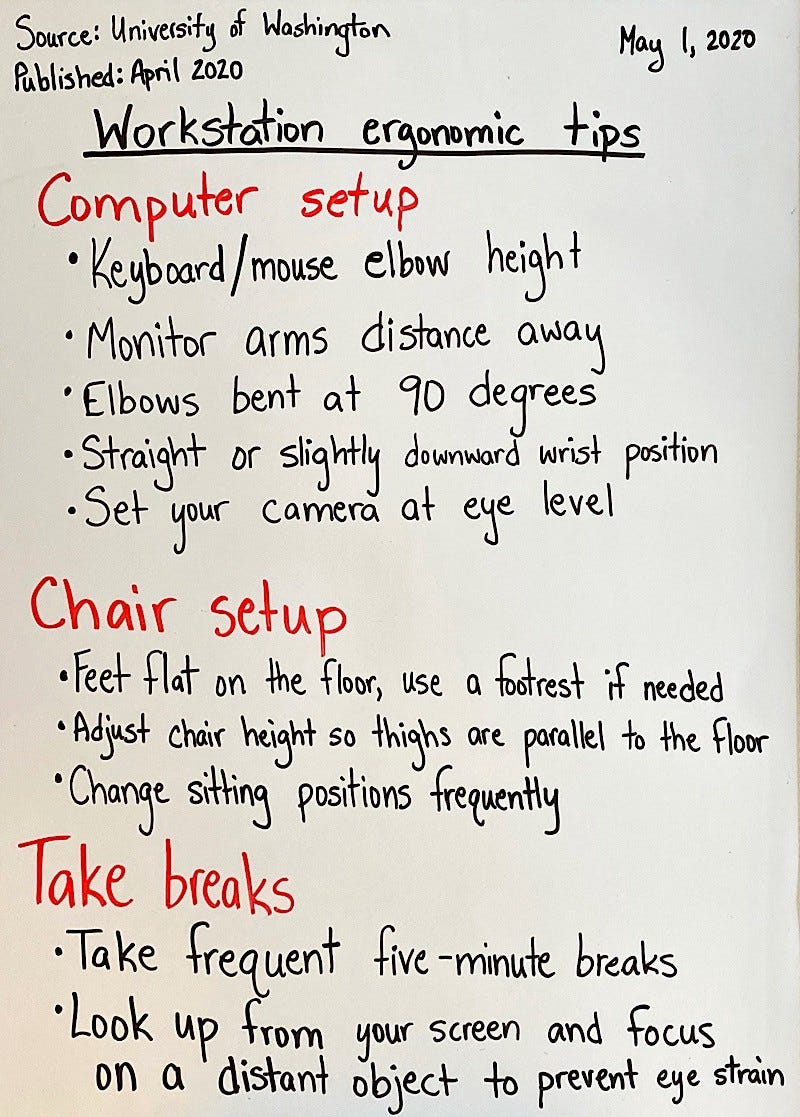 Source: University of Washington
May 1, 2020
Published: April 2020
Workstation ergonomic tips
Computer setup
• Keyboard/mouse elbow height
• Monitor arms distance away
• Elbows bent at 90 degrees
• Straight or slightly downward wrist position
• Set your camera at eye level
Chair setup
• Feet flat on the floor, use a footrest if needed
• Adjust chair height so thighs are parallel to the floor
• Change sitting positions frequently
Take breaks
• Take frequent five-minute breaks
• Look up from your screen and focus
on a distant object to prevent eye strain